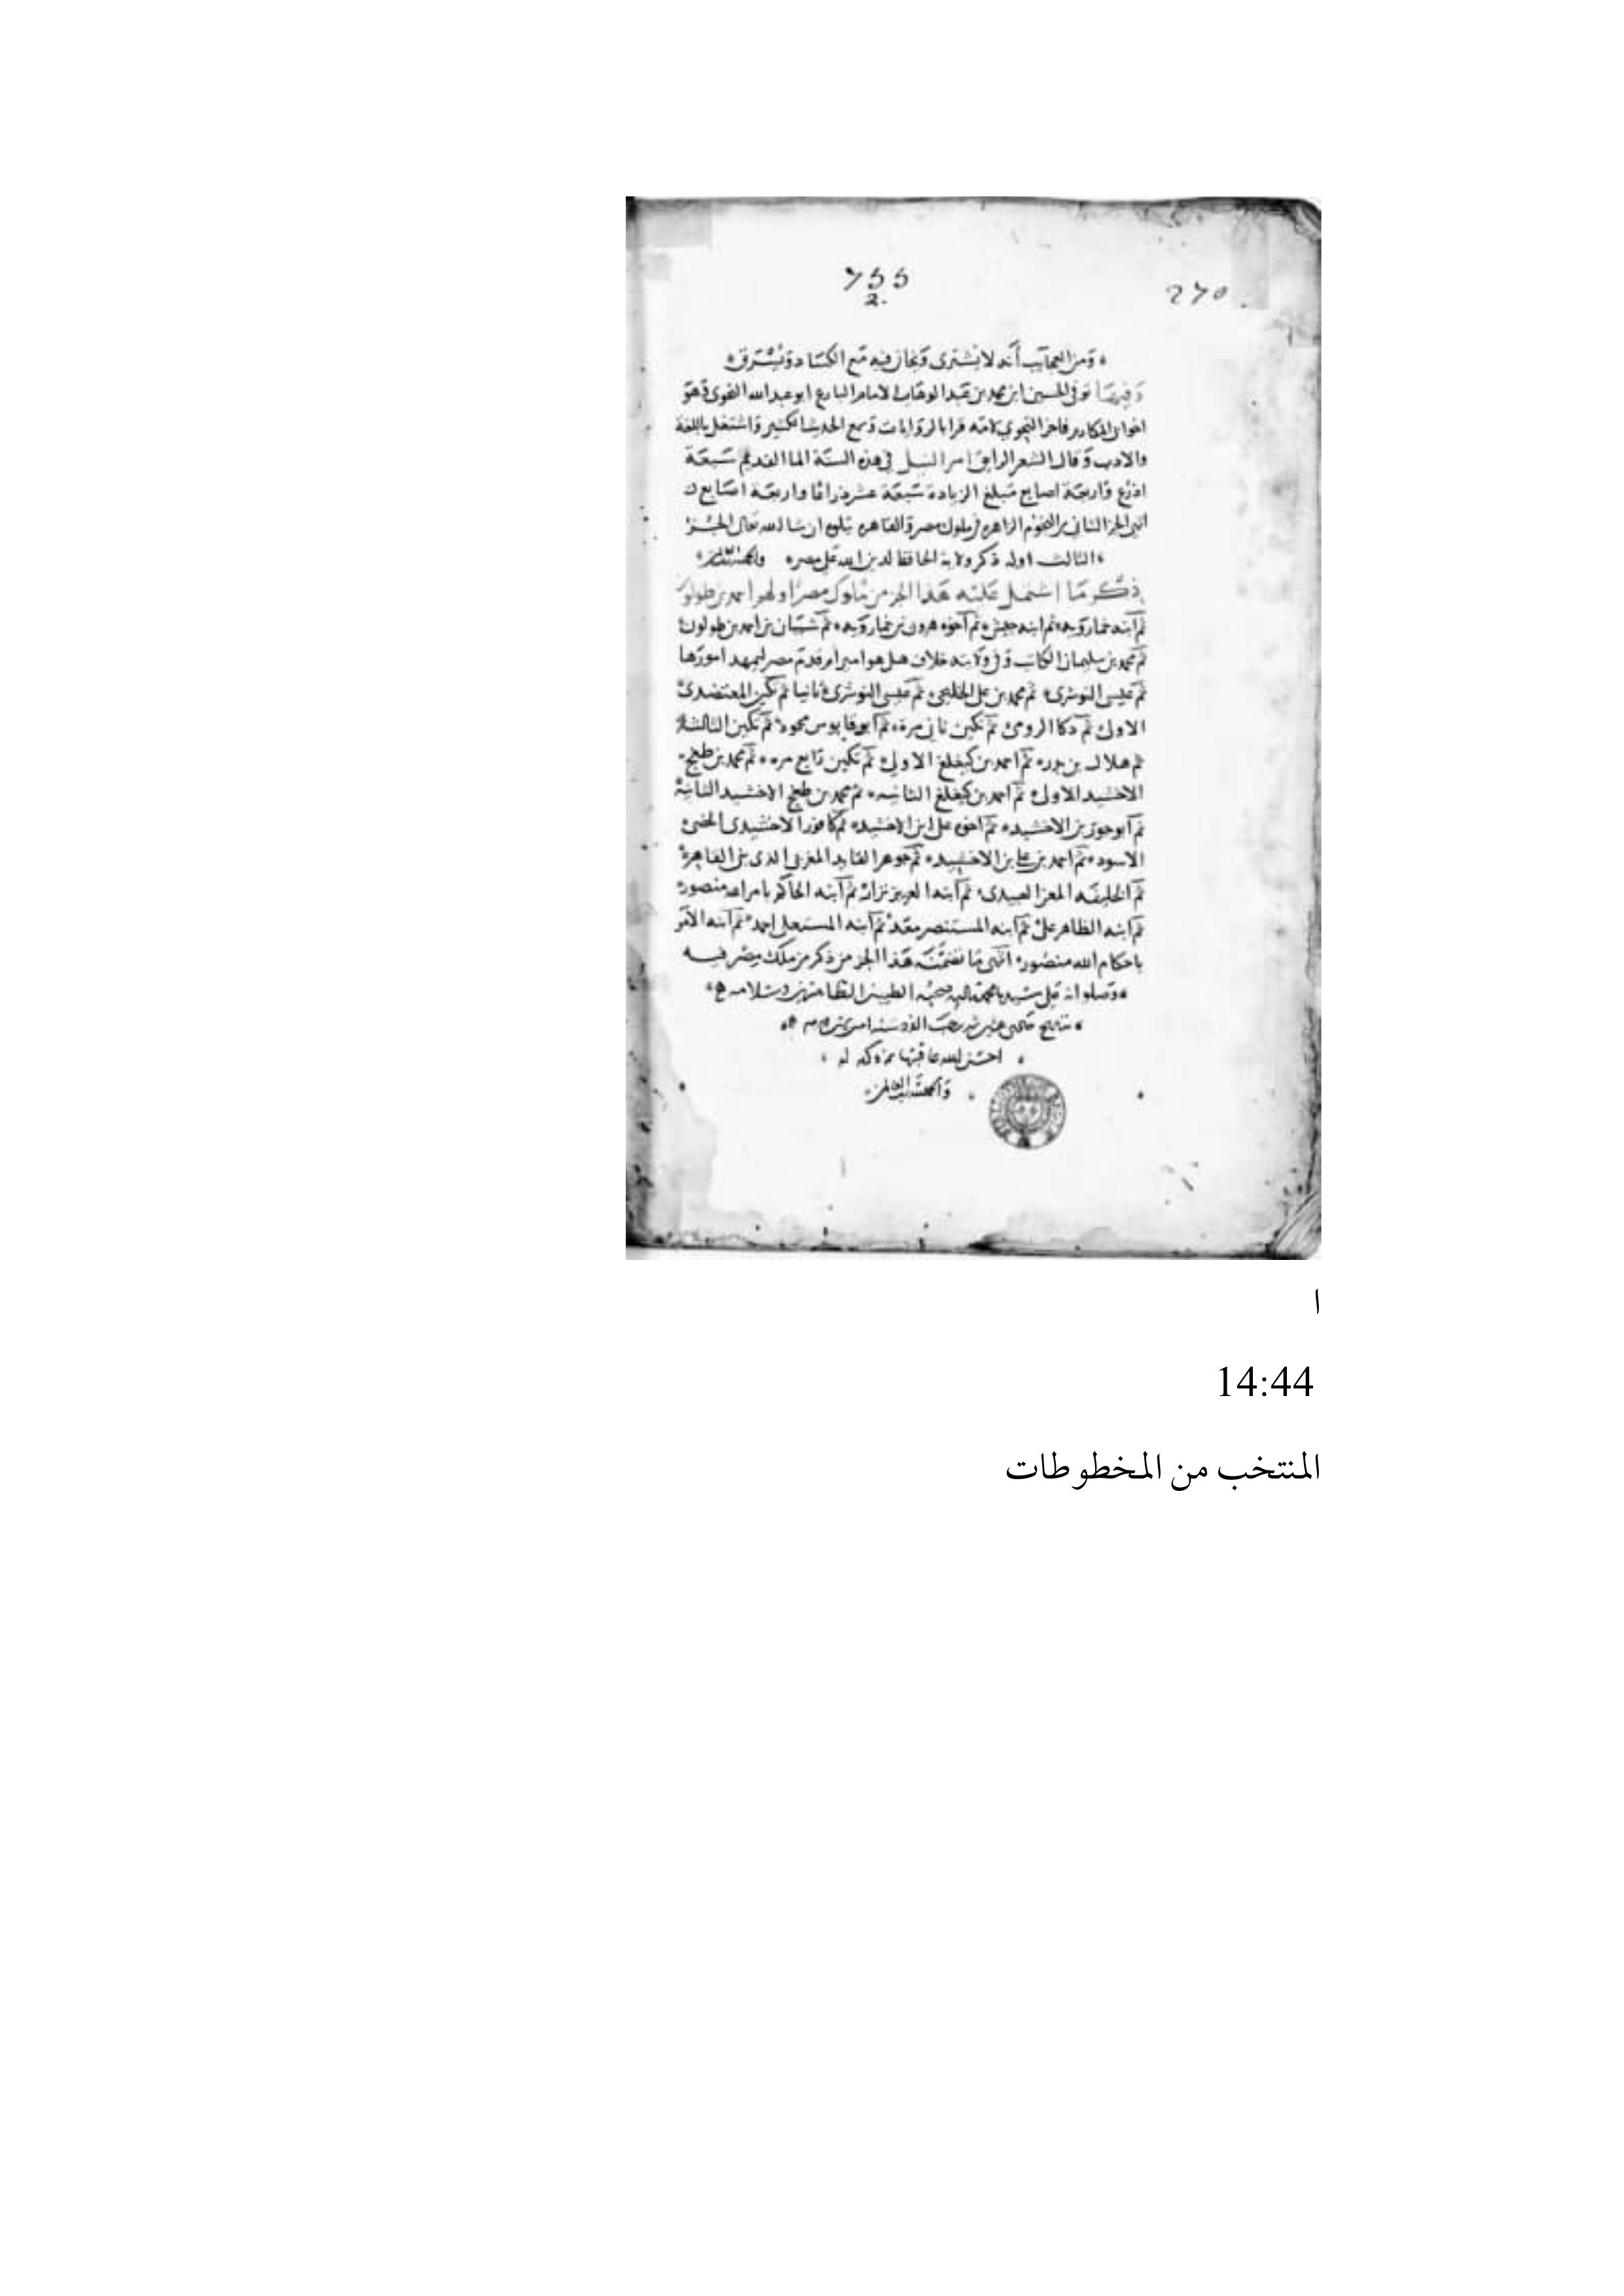 755
2.
270
ومن العجايب أنه لا يشترى ويخان فيه مع الكساد ويسترق
وفيها توفى الحسين ابن محمد بن عبد الوهاب الامام البارع ابو عبد الله النحوى وهو
اخو ابى الكارم فاخر النحوي لامه قرا بالروايات وسمع الحديث الكثير واشتغل باللغة
والادب وقال الشعر الرايق امر النيل في هذه السنة الما القديم سبعة
اذرع واربعة اصابع مبلغ الزيادة سبعة عشر ذراعا واربعة اصابع
انتهى الجز الثانى من النجوم الزاهره فى ملوك مصر والقاهره يتلوه ان شا الله تعالى الجز
الثالث اوله ذكر ولاية الحافظ لدين الله على مصر
ذكر ما اشتمل عليه هذا الجز من ملوك مصر اولهم احمد بن طولون
ثم ابنه خمارويه ثم ابنه جيش ثم اخوه هرون بن خمارويه ثم شيبان بن احمد بن طولون
ثم محمد بن سليمان الكاتب وفى ولايته خلاف هل هو امير ام قدم مصر ليمهد امورها
ثم عيسى النوشرى ثم محمد بن على الخلنجى ثم عيسى النوشرى ثانيا ثم تكين المعتضدى
الاول ثم ذكا الرومى ثم تكين ثانى مره ثم ابو قابوس محمود ثم تكين الثالثة
ثم هلال بن بدر ثم احمد بن كيغلغ الاولى ثم تكين رابع مره ثم محمد بن طغج
الاخشيد الاولى ثم احمد بن كيغلغ الثانيه ثم محمد بن طغج الاخشيد الثانية
ثم ابو جور بن الاخشيد ثم اخوه على ابن الاخشيد ثم كافور الاخشيدى الخصى
الاسود ثم احمد بن على بن الاخشيد ثم جوهر القايد المغربى الذى بنى القاهرة
ثم الخليفه المعز العبيدى ثم ابنه العزيز نزار ثم ابنه الحاكم بامر الله منصور
ثم ابنه الظاهر على ثم ابنه المستنصر معد ثم ابنه المستعلى احمد ثم ابنه الامر
باحكام الله منصور انتهى ما تضمنه هذا الجز من ذكر من ملك مصر فيه
وصلواته على سيدنا محمد وصحبه الطيبين الطاهرين وسلامه
احسن الله عاقبتها
ا
14:44
المنتخب من المخطوطات